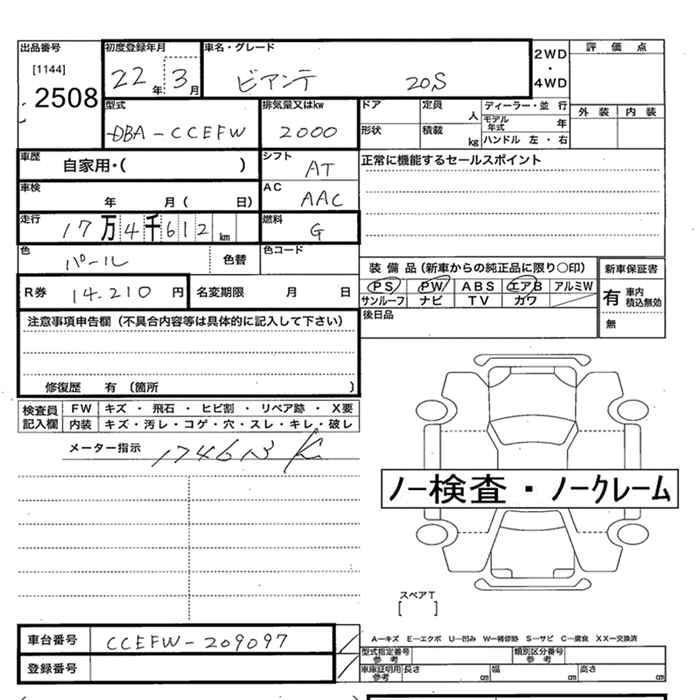 出品番号 初度登録年月 車名・グレード 2WD・4WD 評価点
[1144] 2508 22年 3月 ビアンテ 20S
型式 排気量又はkw ドア 定員 人 ディーラー・並 行 外装 内装
DBA-CCEFW 2000 形状 積載 kg モデル年式 年 ハンドル 左・右
車歴 自家用・( ) シフト AT 正常に機能するセールスポイント
車検 年 月( 日) AC AAC
走行 17万4千612km 燃料 G
色 パール 色替 色コード
装備品(新車からの純正品に限り〇印) 新車保証書
R券 14.210円 名変期限 月 日
PS PW ABS エアB アルミW 有 車内 積込無効
サンルーフ ナビ TV カワ 無
注意事項申告欄(不具合内容等は具体的に記入して下さい) 後日品
修復歴 有(箇所 )
検査員記入欄 FW キズ・飛石・ヒビ割・リペア跡・X要
内装 キズ・汚レ・コゲ・穴・スレ・キレ・破レ
メーター指示
ノー検査・ノークレーム
スペアT
[ ]
車台番号 CCEFW-209097
A―キズ E―エクボ U―凹み W―補修跡 S―サビ C―腐食 XX―交換済
型式指定番号 参考 類別区分番号 参考
登録番号 車庫証明用参考 長さ cm 幅 cm 高さ cm